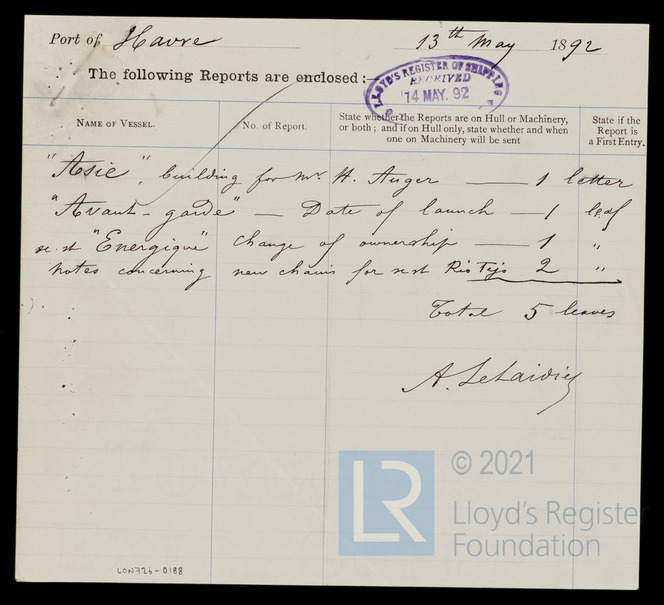 Port of Havre 13th May 1892
The following Reports are enclosed:—
LLOYD'S REGISTER OF SHIPPING
RECEIVED
14 MAY. 92
NAME OF VESSEL. No. of Report. State whether the Reports are on Hull or Machinery, or both; and if on Hull only, state whether and when one on Machinery will be sent State if the Report is a First Entry.
"Asie", building for Mr. H. Auger — 1 letter
"Avant-garde" — Date of launch — 1 leaf
sc. st "Energique" Change of ownership — 1 "
Notes concerning new chains for sc st Rio Tejo 2 "
Total 5 leaves
LR
© 2021
Lloyd's Registe
Foundation
LON726-0188